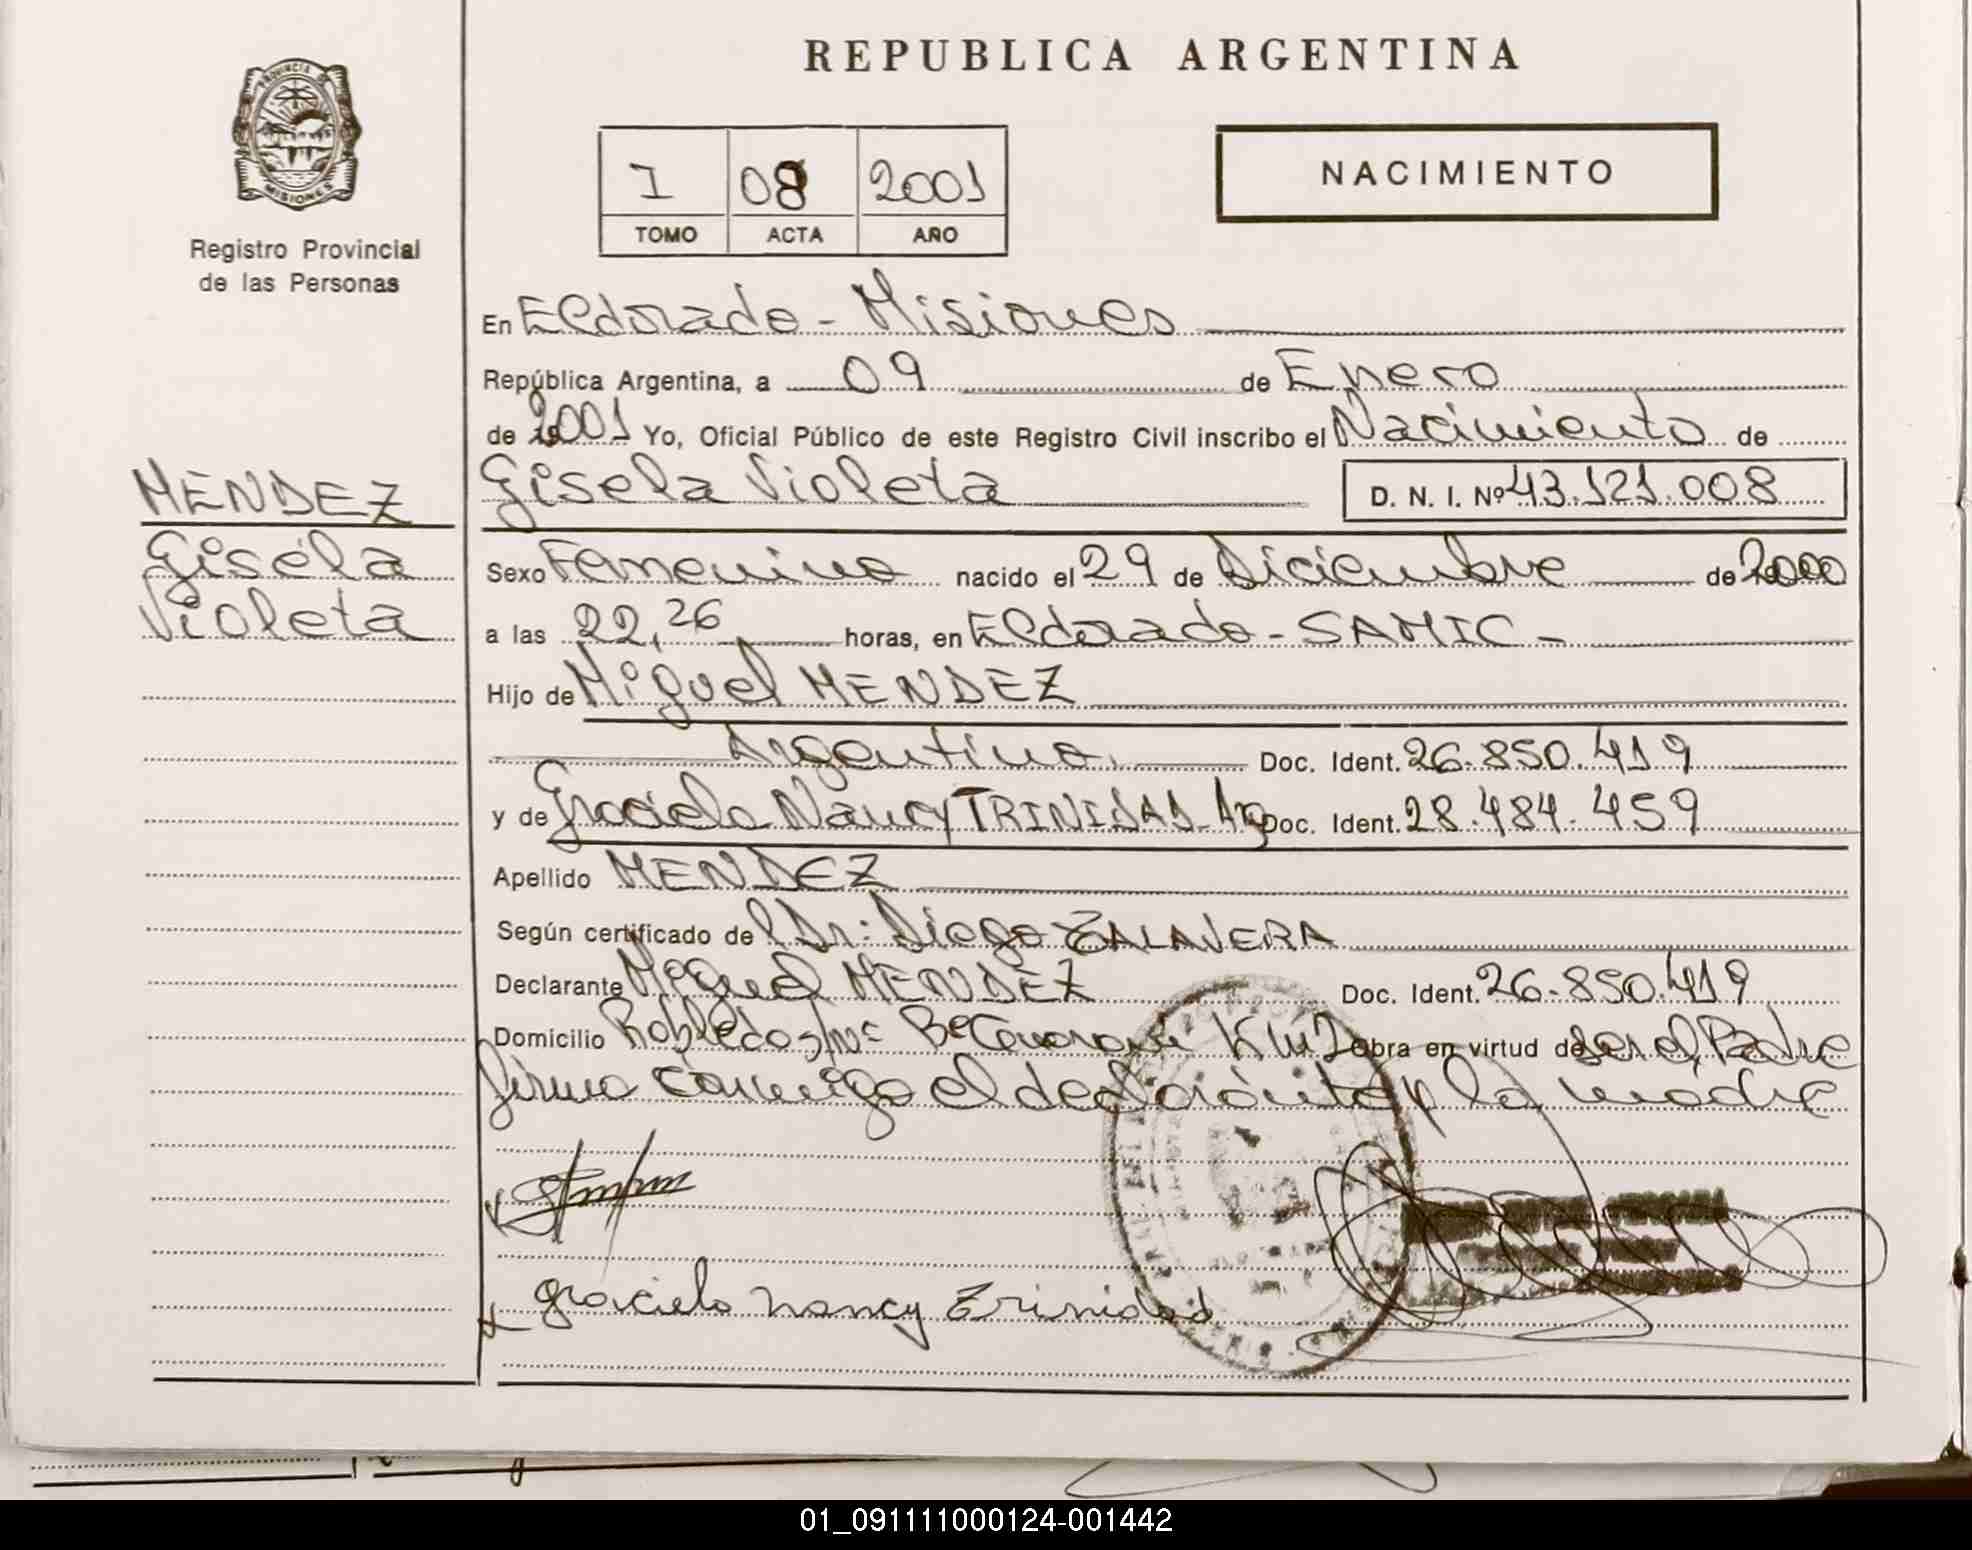 REPUBLICA ARGENTINA
PROVINCIA DE
MISIONES
Registro Provincial
de las Personas
I 08 2001
TOMO ACTA AÑO
NACIMIENTO
En Eldorado - Misiones
República Argentina, a 09 de Enero
de 2001 Yo, Oficial Público de este Registro Civil inscribo el Nacimiento de
MENDEZ
Gisela
Violeta
Gisela Violeta D. N. I. Nº 43.121.008
Sexo Femenino nacido el 29 de Diciembre de 2000
a las 22,26 horas, en Eldorado - SAMIC -
Hijo de Miguel MENDEZ
Argentino. Doc. Ident. 26.850.419
y de Graciela Nancy TRINIDAD - Arg Doc. Ident. 28.484.459
Apellido MENDEZ
Según certificado del Dr: Diego ZALAVERA
Declarante Miguel MENDEZ Doc. Ident. 26.850.419
Domicilio Robledo s/nº Bº Km 2 Obra en virtud de ser el Padre
firma conmigo el declarante y la madre
graciela nancy Trinidad
01_091111000124-001442